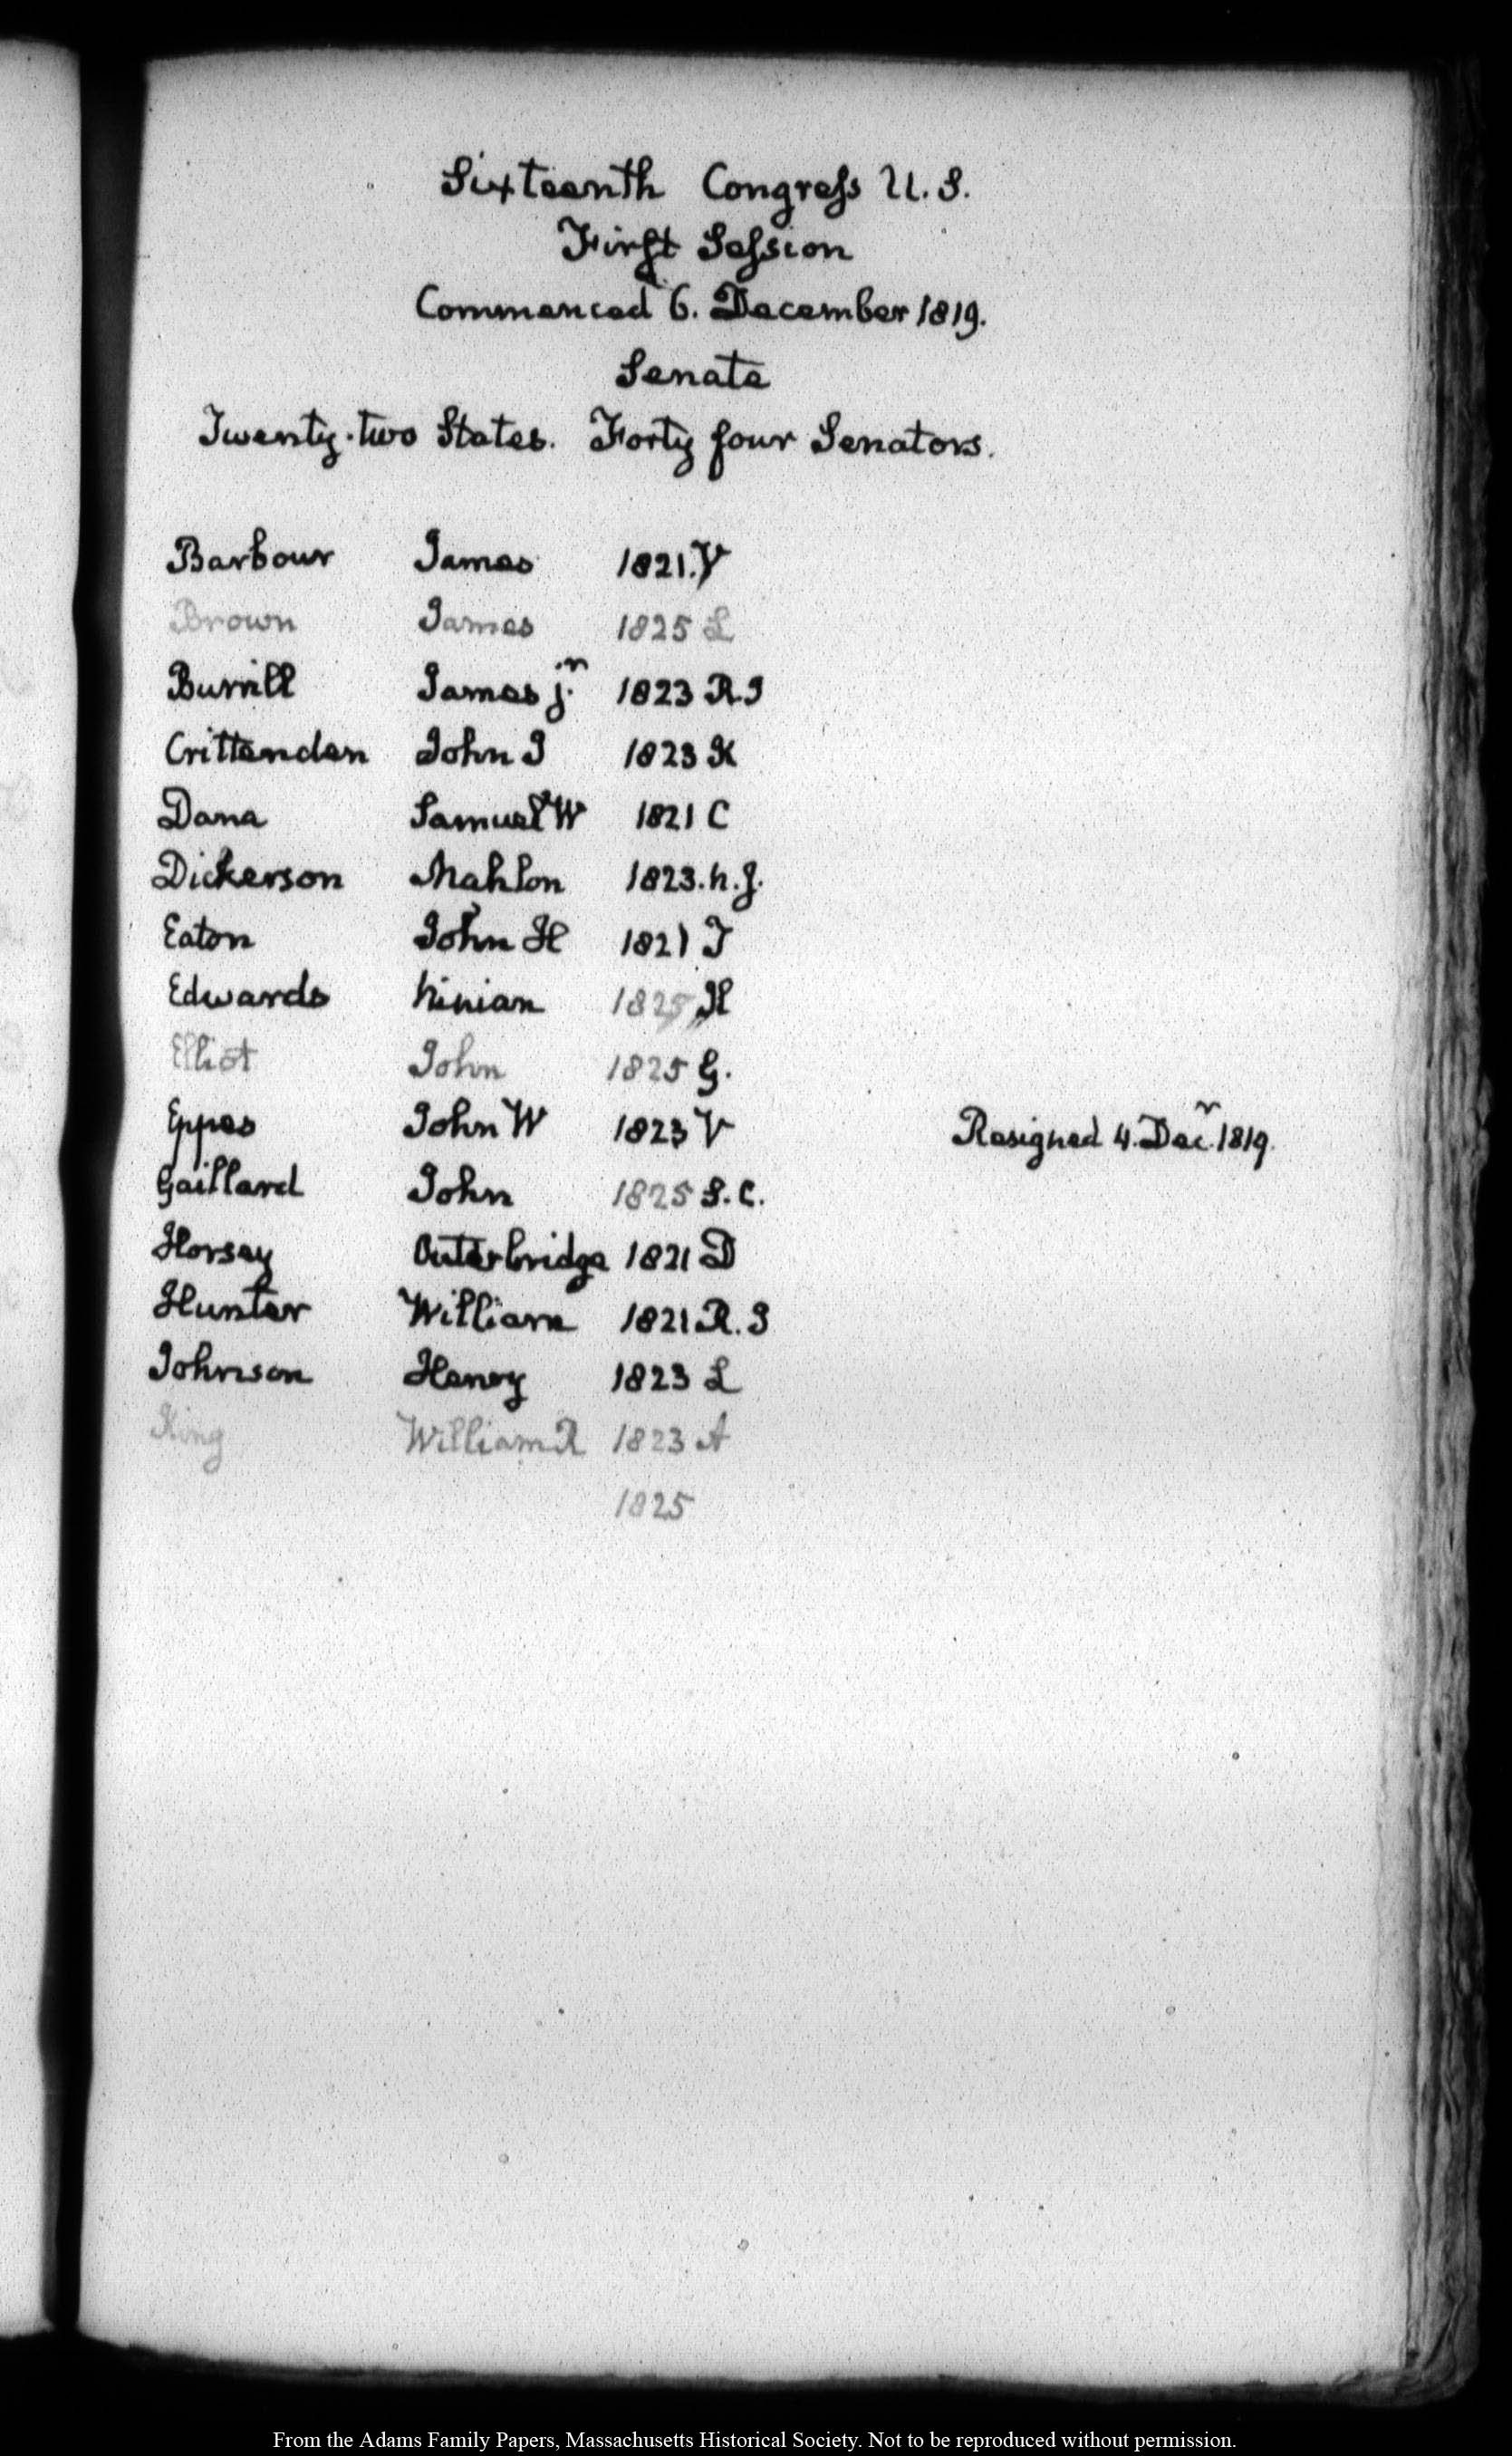 Sixteenth Congress U. S.
First Session
Commenced 6. December 1819.
Senate
Twenty-two States. Forty four Senators.
Barbour James 1821. V
Brown James 1825 L
Burrill James jr. 1823 R.I
Crittenden John J 1823 K
Dana Samuel W 1821 C
Dickerson Mahlon 1823. N. J.
Eaton John H 1821 T
Edwards Ninian 1825 Il
Elliot John 1825 G.
Eppes John W 1823 V Resigned 4. Decr. 1819.
Gaillard John 1825 S. C.
Horsey Outerbridge 1821 D
Hunter William 1821 R. I
Johnson Henry 1823 L
King William R 1823 A
1825
From the Adams Family Papers, Massachusetts Historical Society. Not to be reproduced without permission.